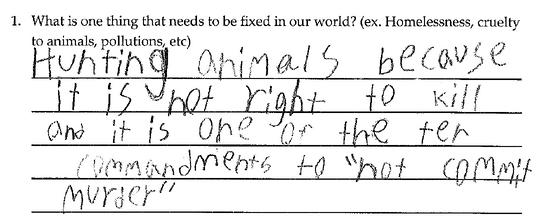 1. What is one thing that needs to be fixed in our world? (ex. Homelessness, cruelty
to animals, pollutions, etc)
Hunting animals because
it is not right to kill
and it is one of the ten
commandments to "not commit
murder"